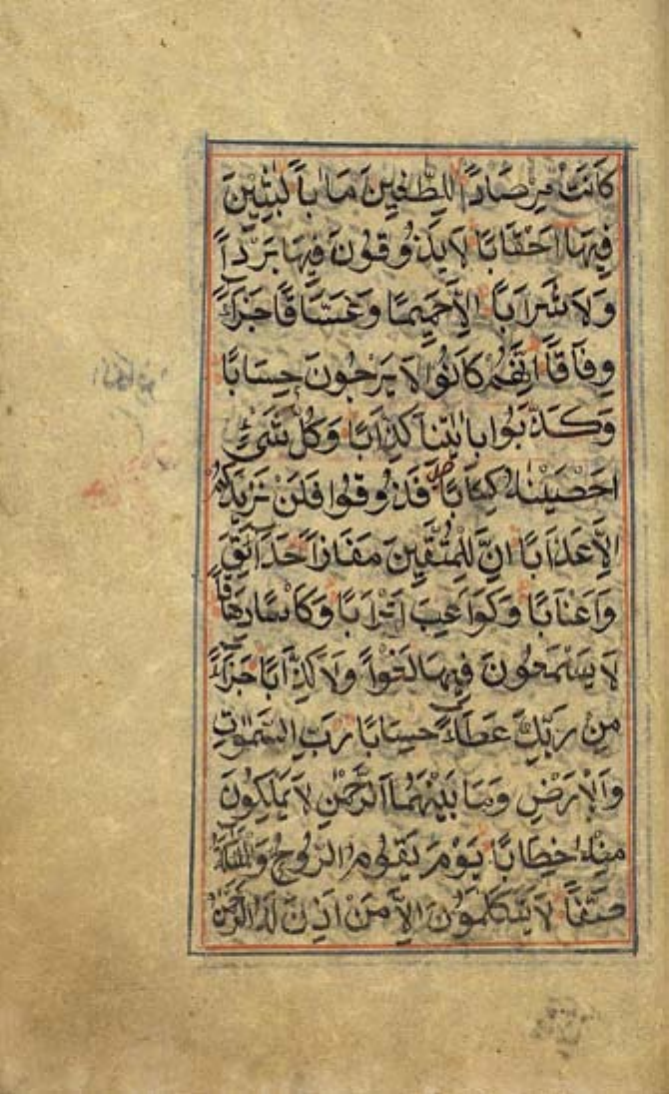 كَانَتْ مِرْصَادًا لِلطّٰغِينَ مَاٰبًا لٰبِثِينَ
فِيهَا اَحْقَابًا لَا يَذُوقُونَ فِيهَا بَرْدًا
وَلَا شَرَابًا اِلَّا حَمِيمًا وَغَسَّاقًا جَزَآءً
وِفَاقًا اِنَّهُمْ كَانُوا لَا يَرْجُونَ حِسَابًا
وَكَذَّبُوا بِاٰيٰتِنَا كِذَّابًا وَكُلَّ شَيْءٍ
اَحْصَيْنٰهُ كِتَابًا فَذُوقُوا فَلَنْ نَزِيدَكُمْ
اِلَّا عَذَابًا اِنَّ لِلْمُتَّقِينَ مَفَازًا حَدَآئِقَ
وَاَعْنَابًا وَكَوَاعِبَ اَتْرَابًا وَكَاْسًا دِهَاقًا
لَا يَسْمَعُونَ فِيهَا لَغْوًا وَلَا كِذَّابًا جَزَآءً
مِنْ رَبِّكَ عَطَآءً حِسَابًا رَبِّ السَّمٰوٰتِ
وَالْاَرْضِ وَمَا بَيْنَهُمَا الرَّحْمٰنِ لَا يَمْلِكُونَ
مِنْهُ خِطَابًا يَوْمَ يَقُومُ الرُّوحُ وَالْمَلٰٓئِكَةُ
صَفًّا لَا يَتَكَلَّمُونَ اِلَّا مَنْ اَذِنَ لَهُ الرَّحْمٰنُ